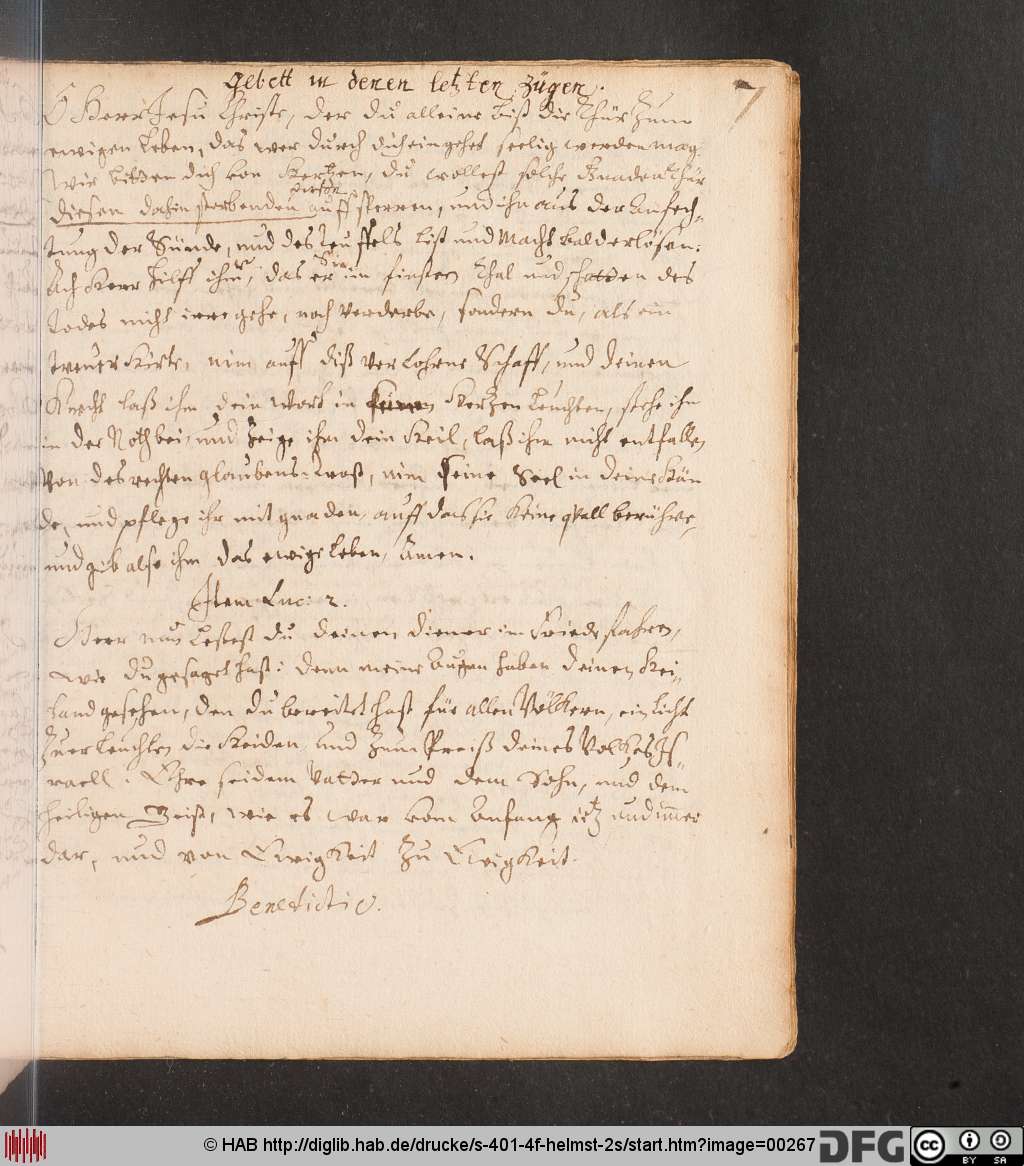 Gebett in denen letzten Zügen.
7
O Herr Jesu Christe, der du alleine bist die Thür zum
ewigen Leben, das wer durch dich eingehet seelig werden mag.
Wir bitten dich von Hertzen, du wollest solche Gnaden Thür
person
diesen dahin sterbenden auff sperren, und ihn aus der Anfech-
tung der Sünde, und des Teuffels list und Macht bald erlösen.
Sie
Ach Herr hilff ihm, das er im finstern Thal und schatten des
Todes nicht irre gehe, noch verderbe, sondern du, als ein
trewer Hirte, nim auff diß verlohrne Schaff, und deinen
Knecht laß ihm dein Wort in seinem Hertzen leuchten, stehe ihm
in der Noth bei, und zeige ihm dein Heil, laß ihm nicht entfallen
von des rechten glaubens trost, nim seine Seel in deine Hän
de, und pflege ihr mit gnaden, auff das sie keine qvall berühre,
und gib also ihm das ewige leben, Amen.
Item Luc: 2.
Herr nun lessest du deinen diener im Friede fahren,
wie du gesaget hast: denn meine Augen haben deinen Hei-
land gesehen, den du bereitet hast für allen Völkern, ein licht
zu erleuchten die Heiden, und zum Preiß deines Volkes Is-
raell. Ehre sei dem Vatter und dem Sohn, und dem
heiligen Geist, wie es war vom Anfang itz und immer
dar, und von Ewigkeit zu Ewigkeit.
Benedictio.
© HAB http://diglib.hab.de/drucke/s-401-4f-helmst-2s/start.htm?image=00267
DFG
cc BY SA